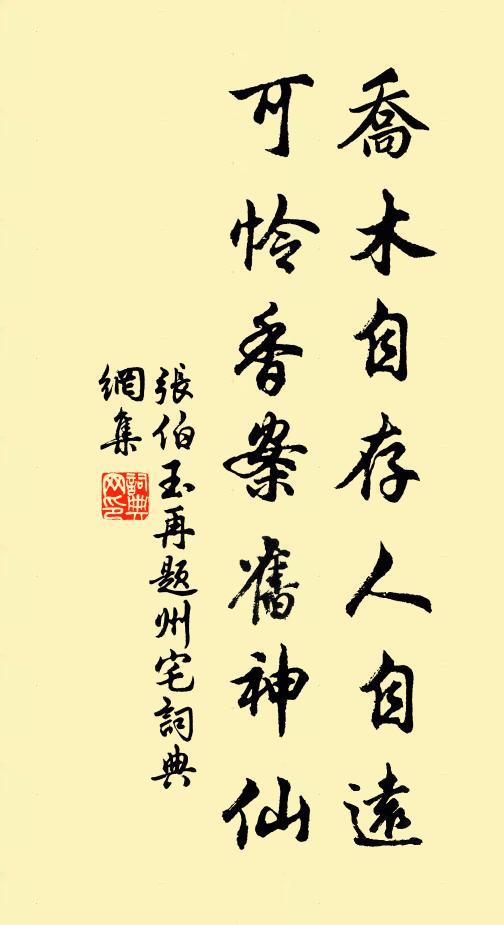 喬木自存人自遠
可怜香案舊神仙
張伯玉再題州宅詞典
網集
詞典
网印